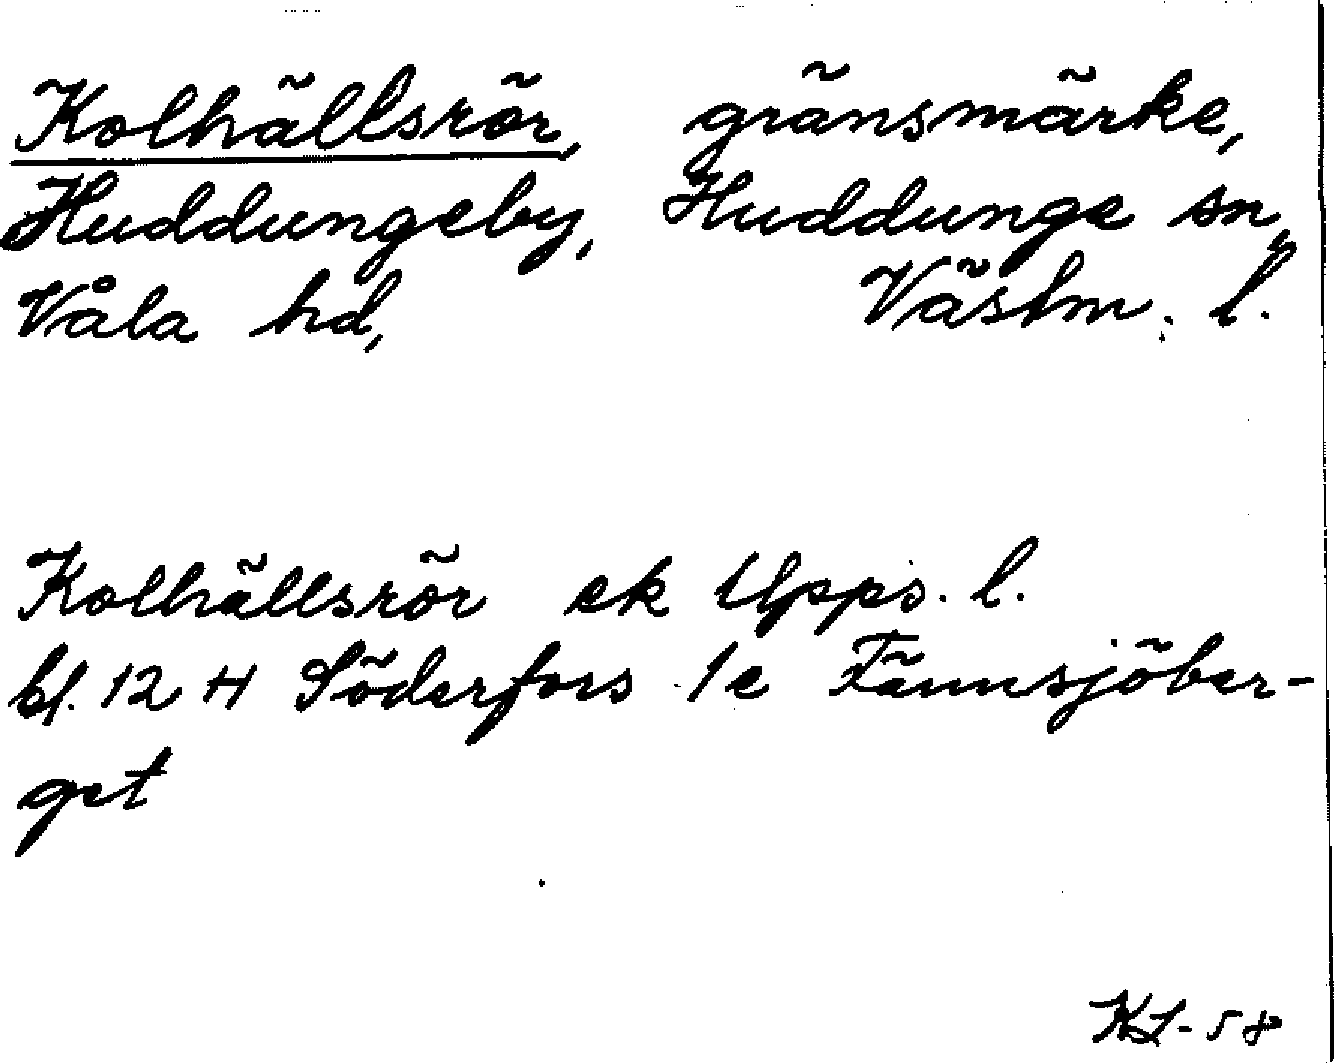 Kolhällsrör, gränsmärke,
Huddungeby, Huddunge sn,
Våla hd, Västm. l.
Kolhällsrör ek Upps. l.
bl. 12 H Söderfors 1e Fännsjöber-
get
KL-58